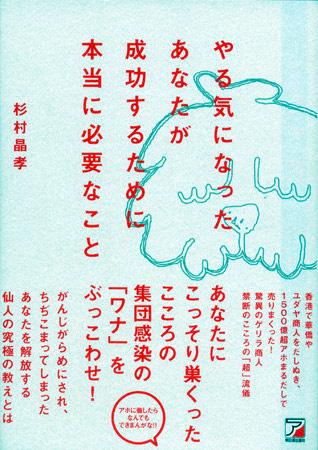 やる気になった
あなたが
成功するために
本当に必要なこと
杉村晶孝
香港で華僑や
ユダヤ商人をだしぬき、
1500億超アホまるだしで
売りまくった!
驚異のゲリラ商人
禁断のこころの「超」流儀
あなたに
こっそり巣くった
こころの
集団感染の
「ワナ」を
ぶっこわせ!
アホに徹したら
なんでも
できまんがな!!
がんじがらめにされ、
ちぢこまってしまった
あなたを解放する
仙人の究極の教えとは
明日香出版社